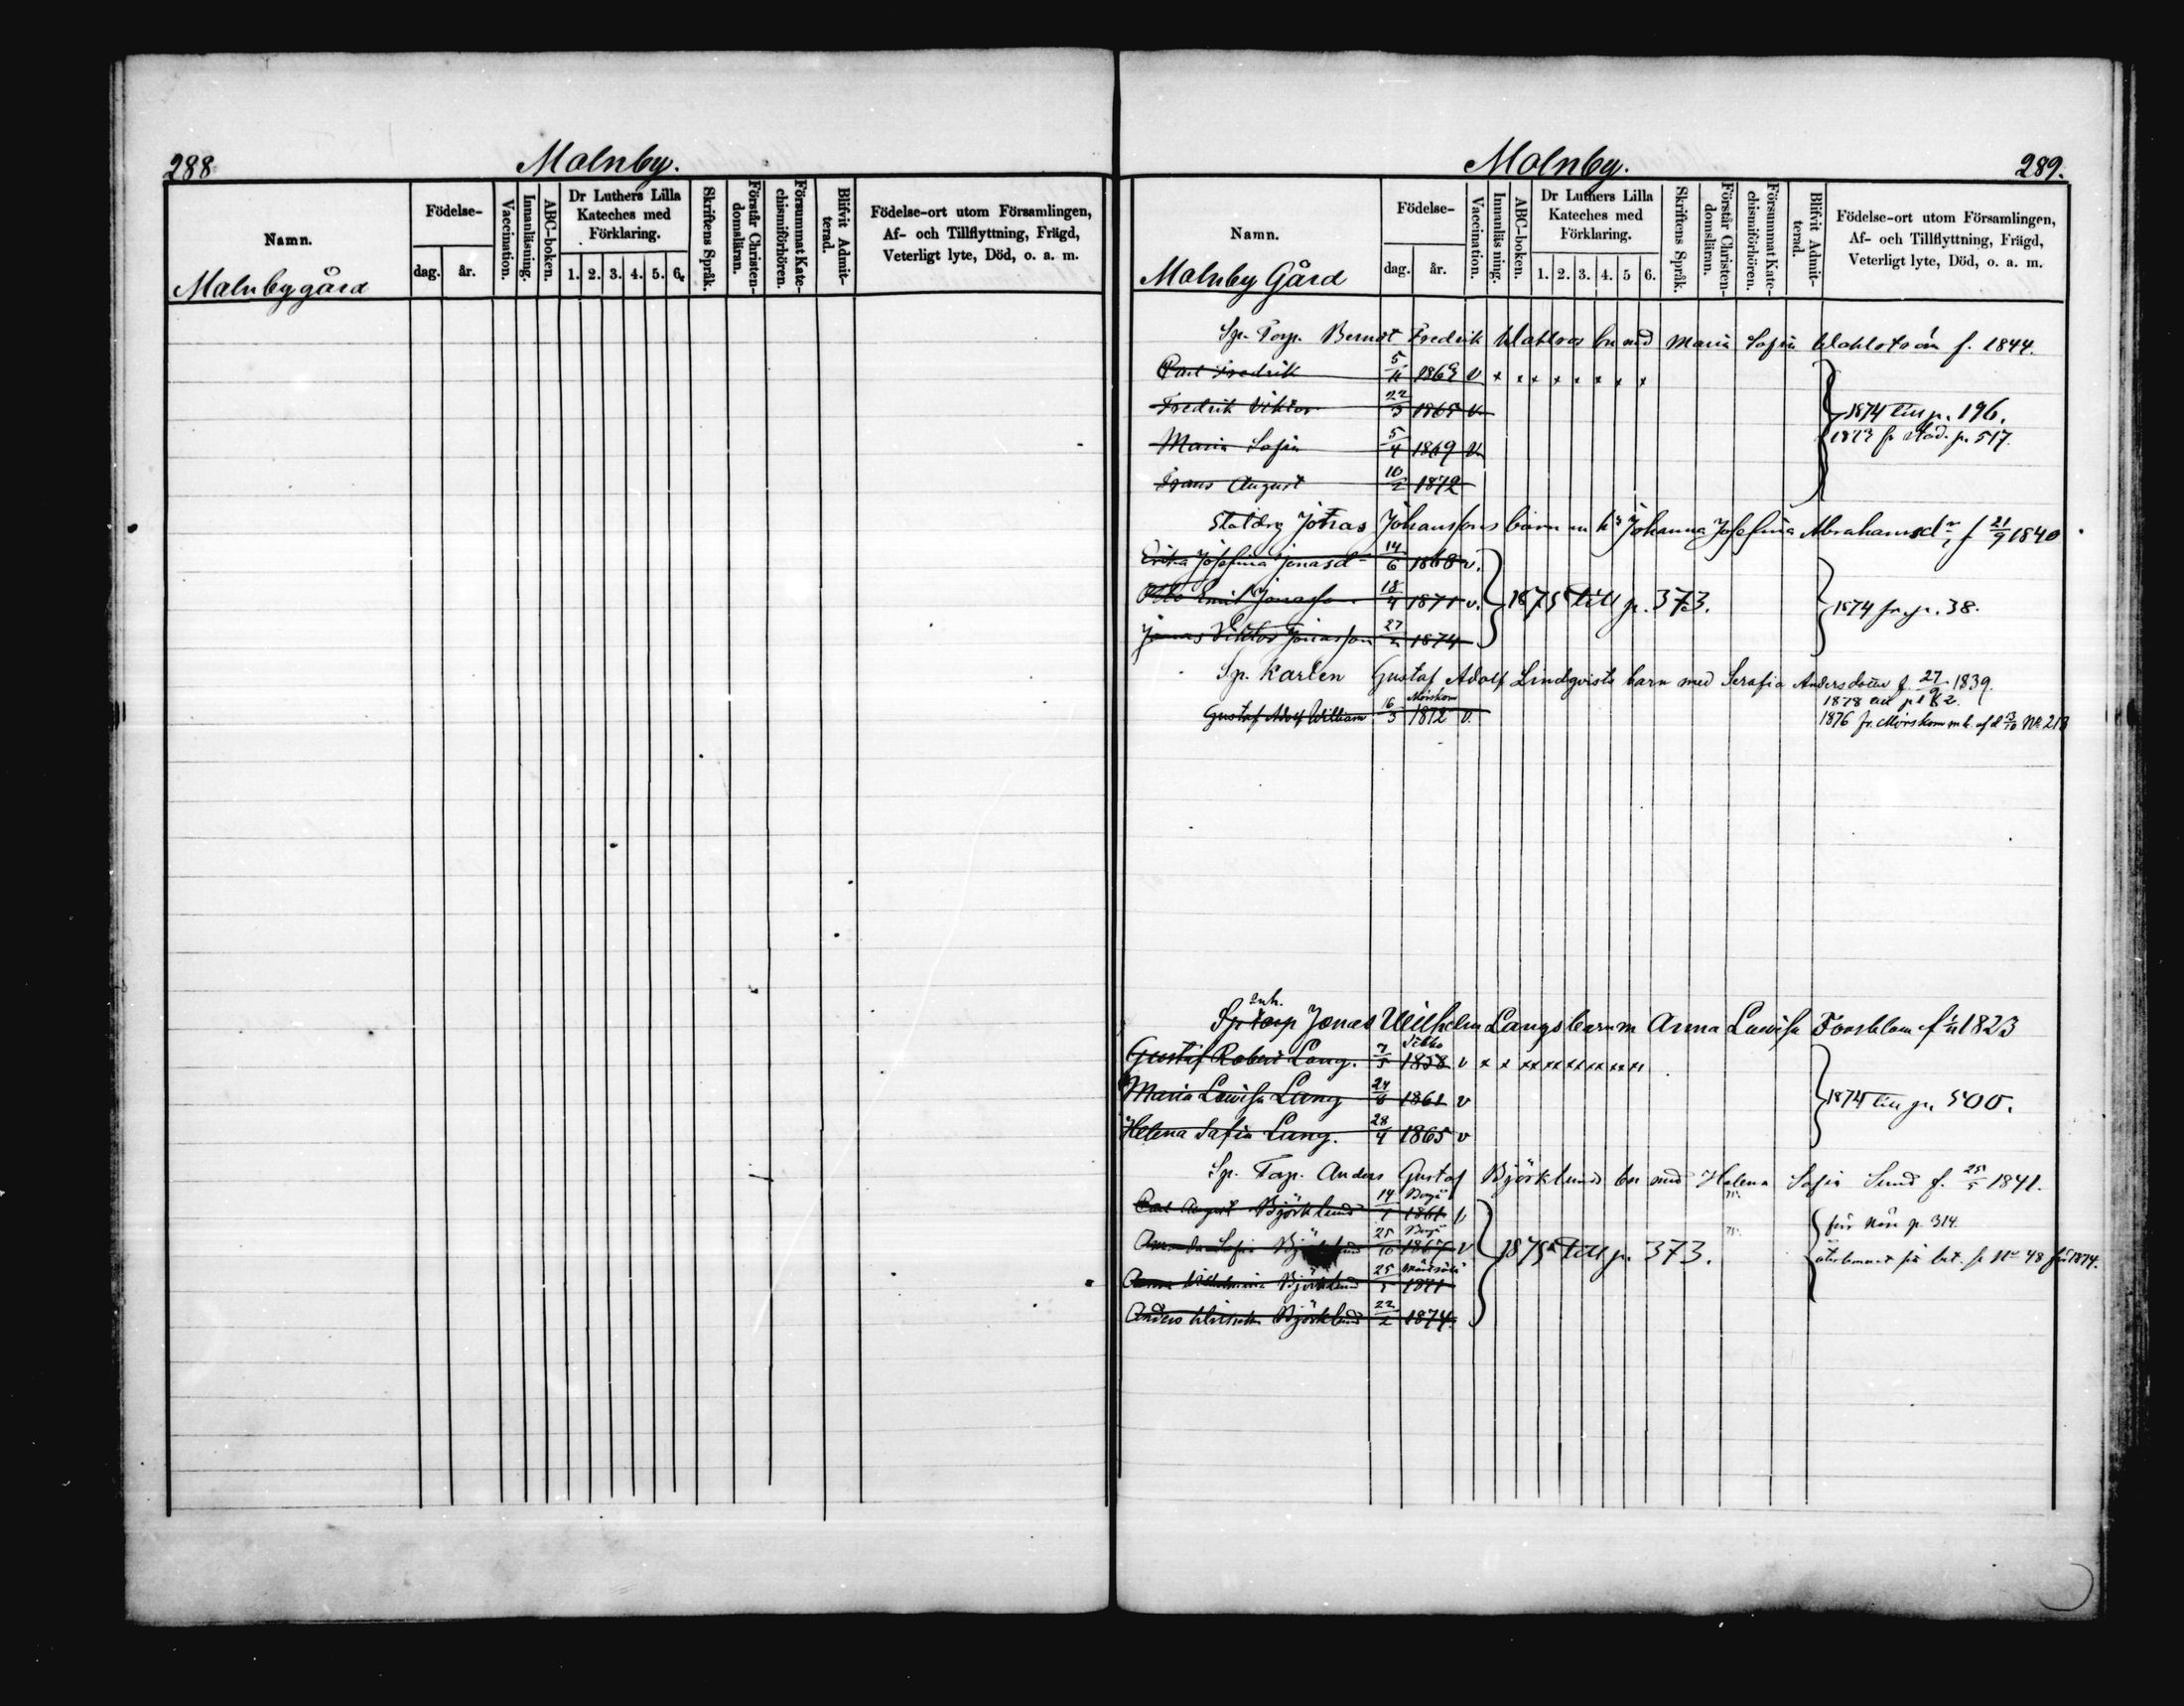 288
Malnby.
Namn.
Födelse-
dag.
år.
Vaccination.
Innanläsning.
ABC-boken.
Dr Luthers Lilla
Kateches med
Förklaring.
1. 2. 3. 4. 5. 6.
Skriftens Språk.
Förstår Christen-
domsläran.
Försummat Kate-
chismiförhören.
Blifvit Admit-
terad.
Födelse-ort utom Församlingen,
Af- och Tillflyttning, Frägd,
Veterligt lyte, Död, o. a. m.
Malnby gård
Malnby.
289.
Namn.
Födelse-
dag.
år.
Vaccination.
Innanläsning.
ABC-boken.
Dr Luthers Lilla
Kateches med
Förklaring.
1. 2. 3. 4. 5 6.
Skriftens Språk.
Förstår Christen-
domsläran.
Försummat Kate-
chismiförhören.
Blifvit Admit-
terad.
Födelse-ort utom Församlingen,
Af- och Tillflyttning, Frägd,
Veterligt lyte, Död, o. a. m.
Malnby Gård
Sp. Torp. Berndt Fredrik Wahlros bn med Maria Sofia Wahlström f. 1844.
Carl Fredrik 5/11 v x x x x x x x x
Fredrik Viktor 22/3 1865 v. 1874 till p. 196.
Maria Sofia 5/4 1869 v. 1873 fr p. 517.
Frans August 10/2 1872
Statdrg Jonas Johanssons barn m h. Johanna Josefina Abrahamsdr f 21/9 1840
Erika Josefina Jonasdr 14/6 1868 v.
Otto Emil Jonasson 18/4 1871 v. 1875 till p. 373. 1874 fr. p. 38.
Jonas Viktor Jonasson 27/2 1874
Sp. Karlen Gustaf Adolf Lindqvists barn med Serafia Andersdotter f. 27/9 1839.
Mörskom 1878
Gustaf Adolf William 16/3 1872 v. 1876 fr. Mörskom m b. af d 13/10 No 213
Inh.
Sp torp Jonas Wilhelm Langs barn m Anna Lovisa Forsblom f 1823
Sibbo
Gustaf Robert Lang. 7/5 1858 v x x x x x x x x x x x
Maria Lovisa Lang 24/6 1861 v 1874 till p. 500.
Helena Sofia Lang. 28/4 1865 v
Sp. Torp. Anders Gustaf Björklunds bn med Helena Sofia Sund f. 25/5 1841.
Borgå
Carl August Björklund 14/1 1861 v p. 314.
Borgå
Amanda Sofia Björklund 25/10 1867 v 1875 till p. 373. bet. fr No 48 från 1874.
Mäntsälä
Anna Wilhelmina Björklund 25/5 1871
Anders Björklund 22/2 1874.